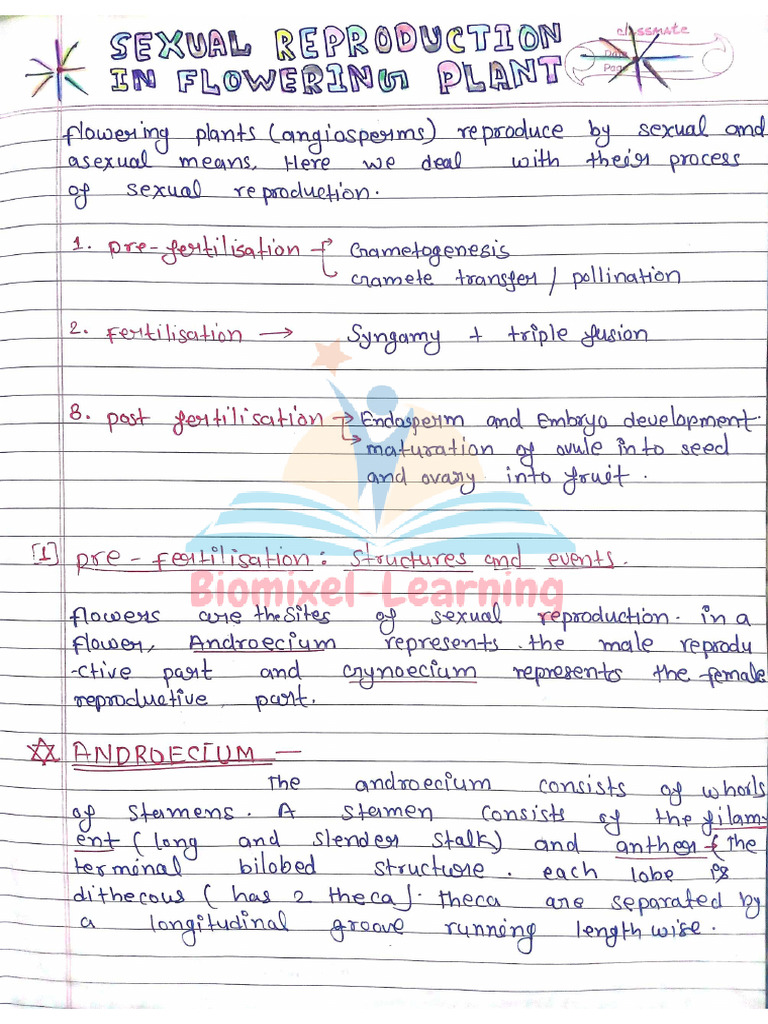 SEXUAL REPRODUCTION
IN FLOWERING PLANT
classmate
Date
Page
flowering plants (angiosperms) reproduce by sexual and
asexual means, Here we deal with their process
of sexual reproduction.
1. pre-fertilisation → Gametogenesis
Gamete transfer / pollination
2. fertilisation → Syngamy + triple fusion
3. post fertilisation → Endosperm and Embryo development.
→ maturation of ovule into seed
and ovary into fruit.
[1] pre - fertilisation : structures and events.
Biomixel-Learning
flowers are the sites of sexual reproduction. in a
flower, Androecium represents the male reprodu
-ctive part and Gynoecium represents the female
reproductive part.
ANDROECIUM —
The androecium consists of whorls
of stamens. A stamen consists of the filam-
ent (long and slender stalk) and anther (the
terminal bilobed structure. each lobe is
dithecous (has 2 theca). theca are separated by
a longitudinal groove running lengthwise.